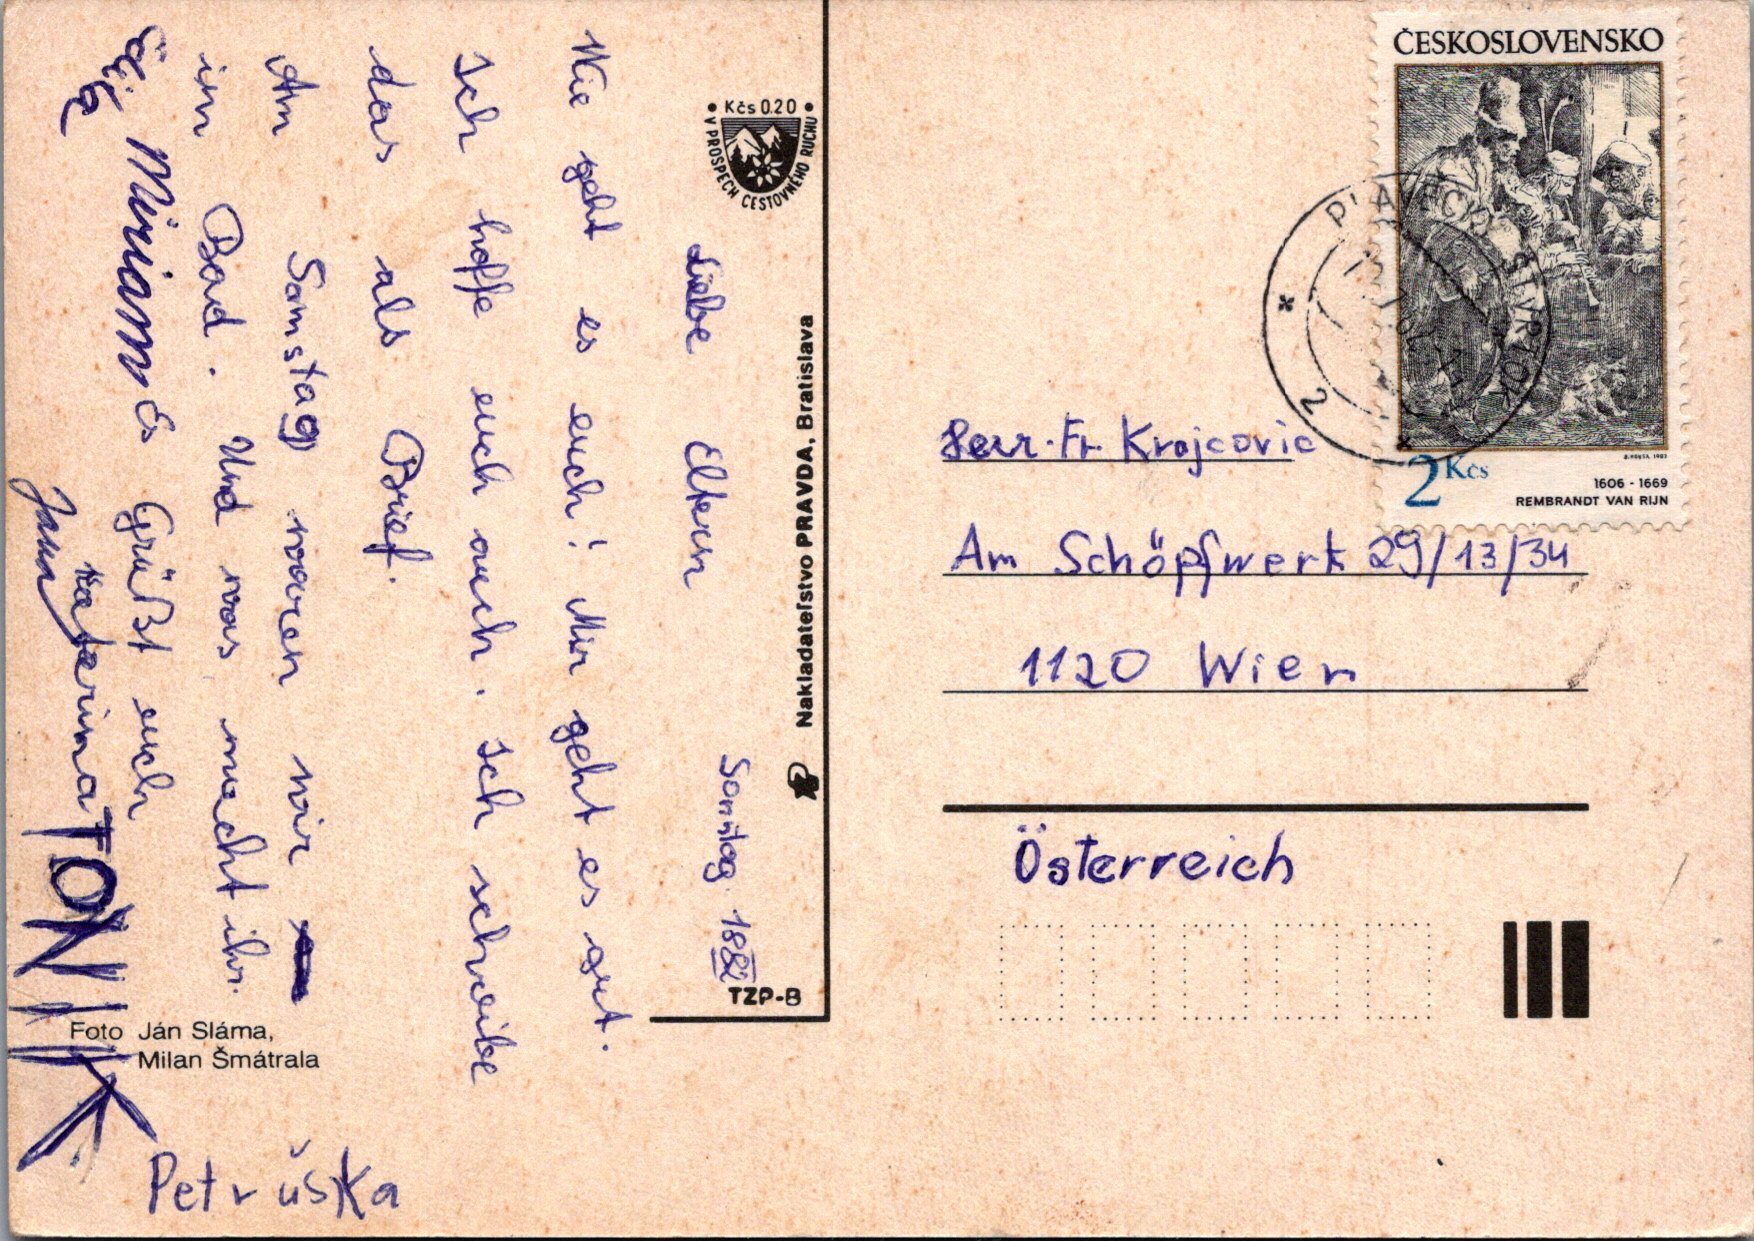 Sonntag 1882
Liebe Eltern
Wie geht es euch! Mir geht es gut.
Ich hoffe euch auch. Ich schreibe
das als Brief.
Am Samstag waren wir
im Bad. Und was macht ihr.
Es Grüßt euch
Miriam
Katerina
Jana
TONIK
Petruška
Foto Ján Sláma,
Milan Šmátrala
• Kčs 0.20 •
V PROSPECH CESTOVNÉHO RUCHU
Nakladateľstvo PRAVDA, Bratislava
TZP-B
ČESKOSLOVENSKO
2 Kčs
1606 - 1669
REMBRANDT VAN RIJN
PLAVECKÝ ŠTVRTOK
2
Herr. Fr Krajcovic
Am Schöpfwerk 29/13/34
1120 Wien
Österreich